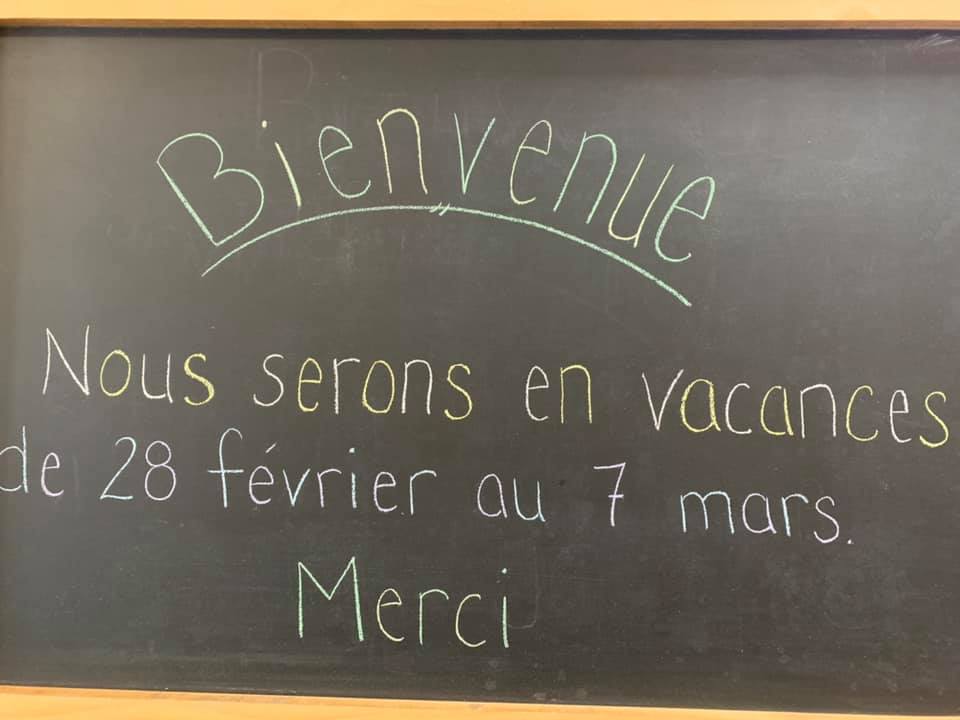 Bienvenue
Nous serons en vacances
de 28 février au 7 mars.
Merci